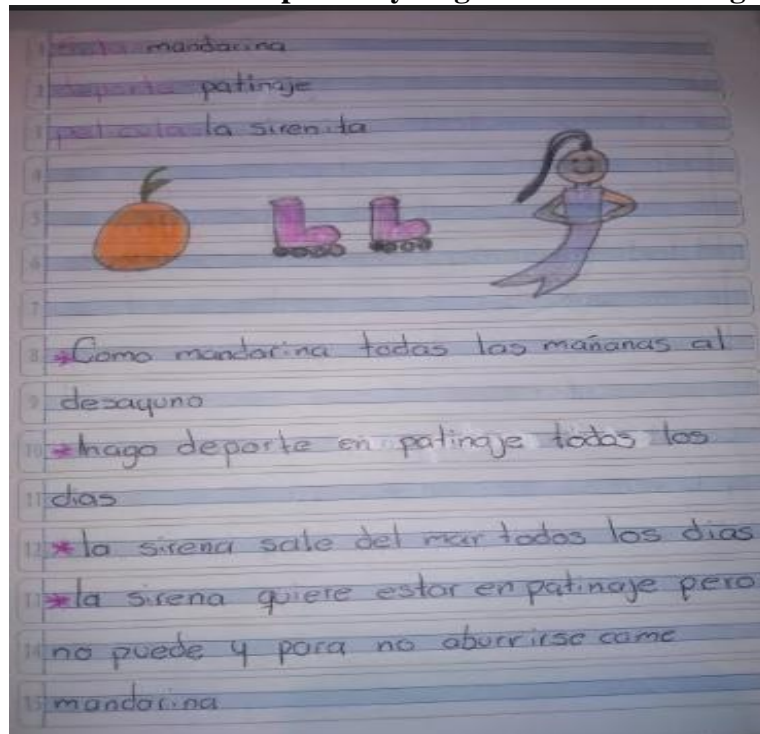 fruta mandarina
deporte patinaje
pelicula la sirenita
*Como mandarina todas las mañanas al
desayuno
*hago deporte en patinaje todos los
dias
*la sirena sale del mar todos los dias
*la sirena quiere estar en patinaje pero
no puede y para no aburrirse come
mandarina